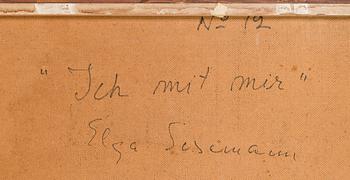 No 12
"Ich mit mir"
Elga Sesemann